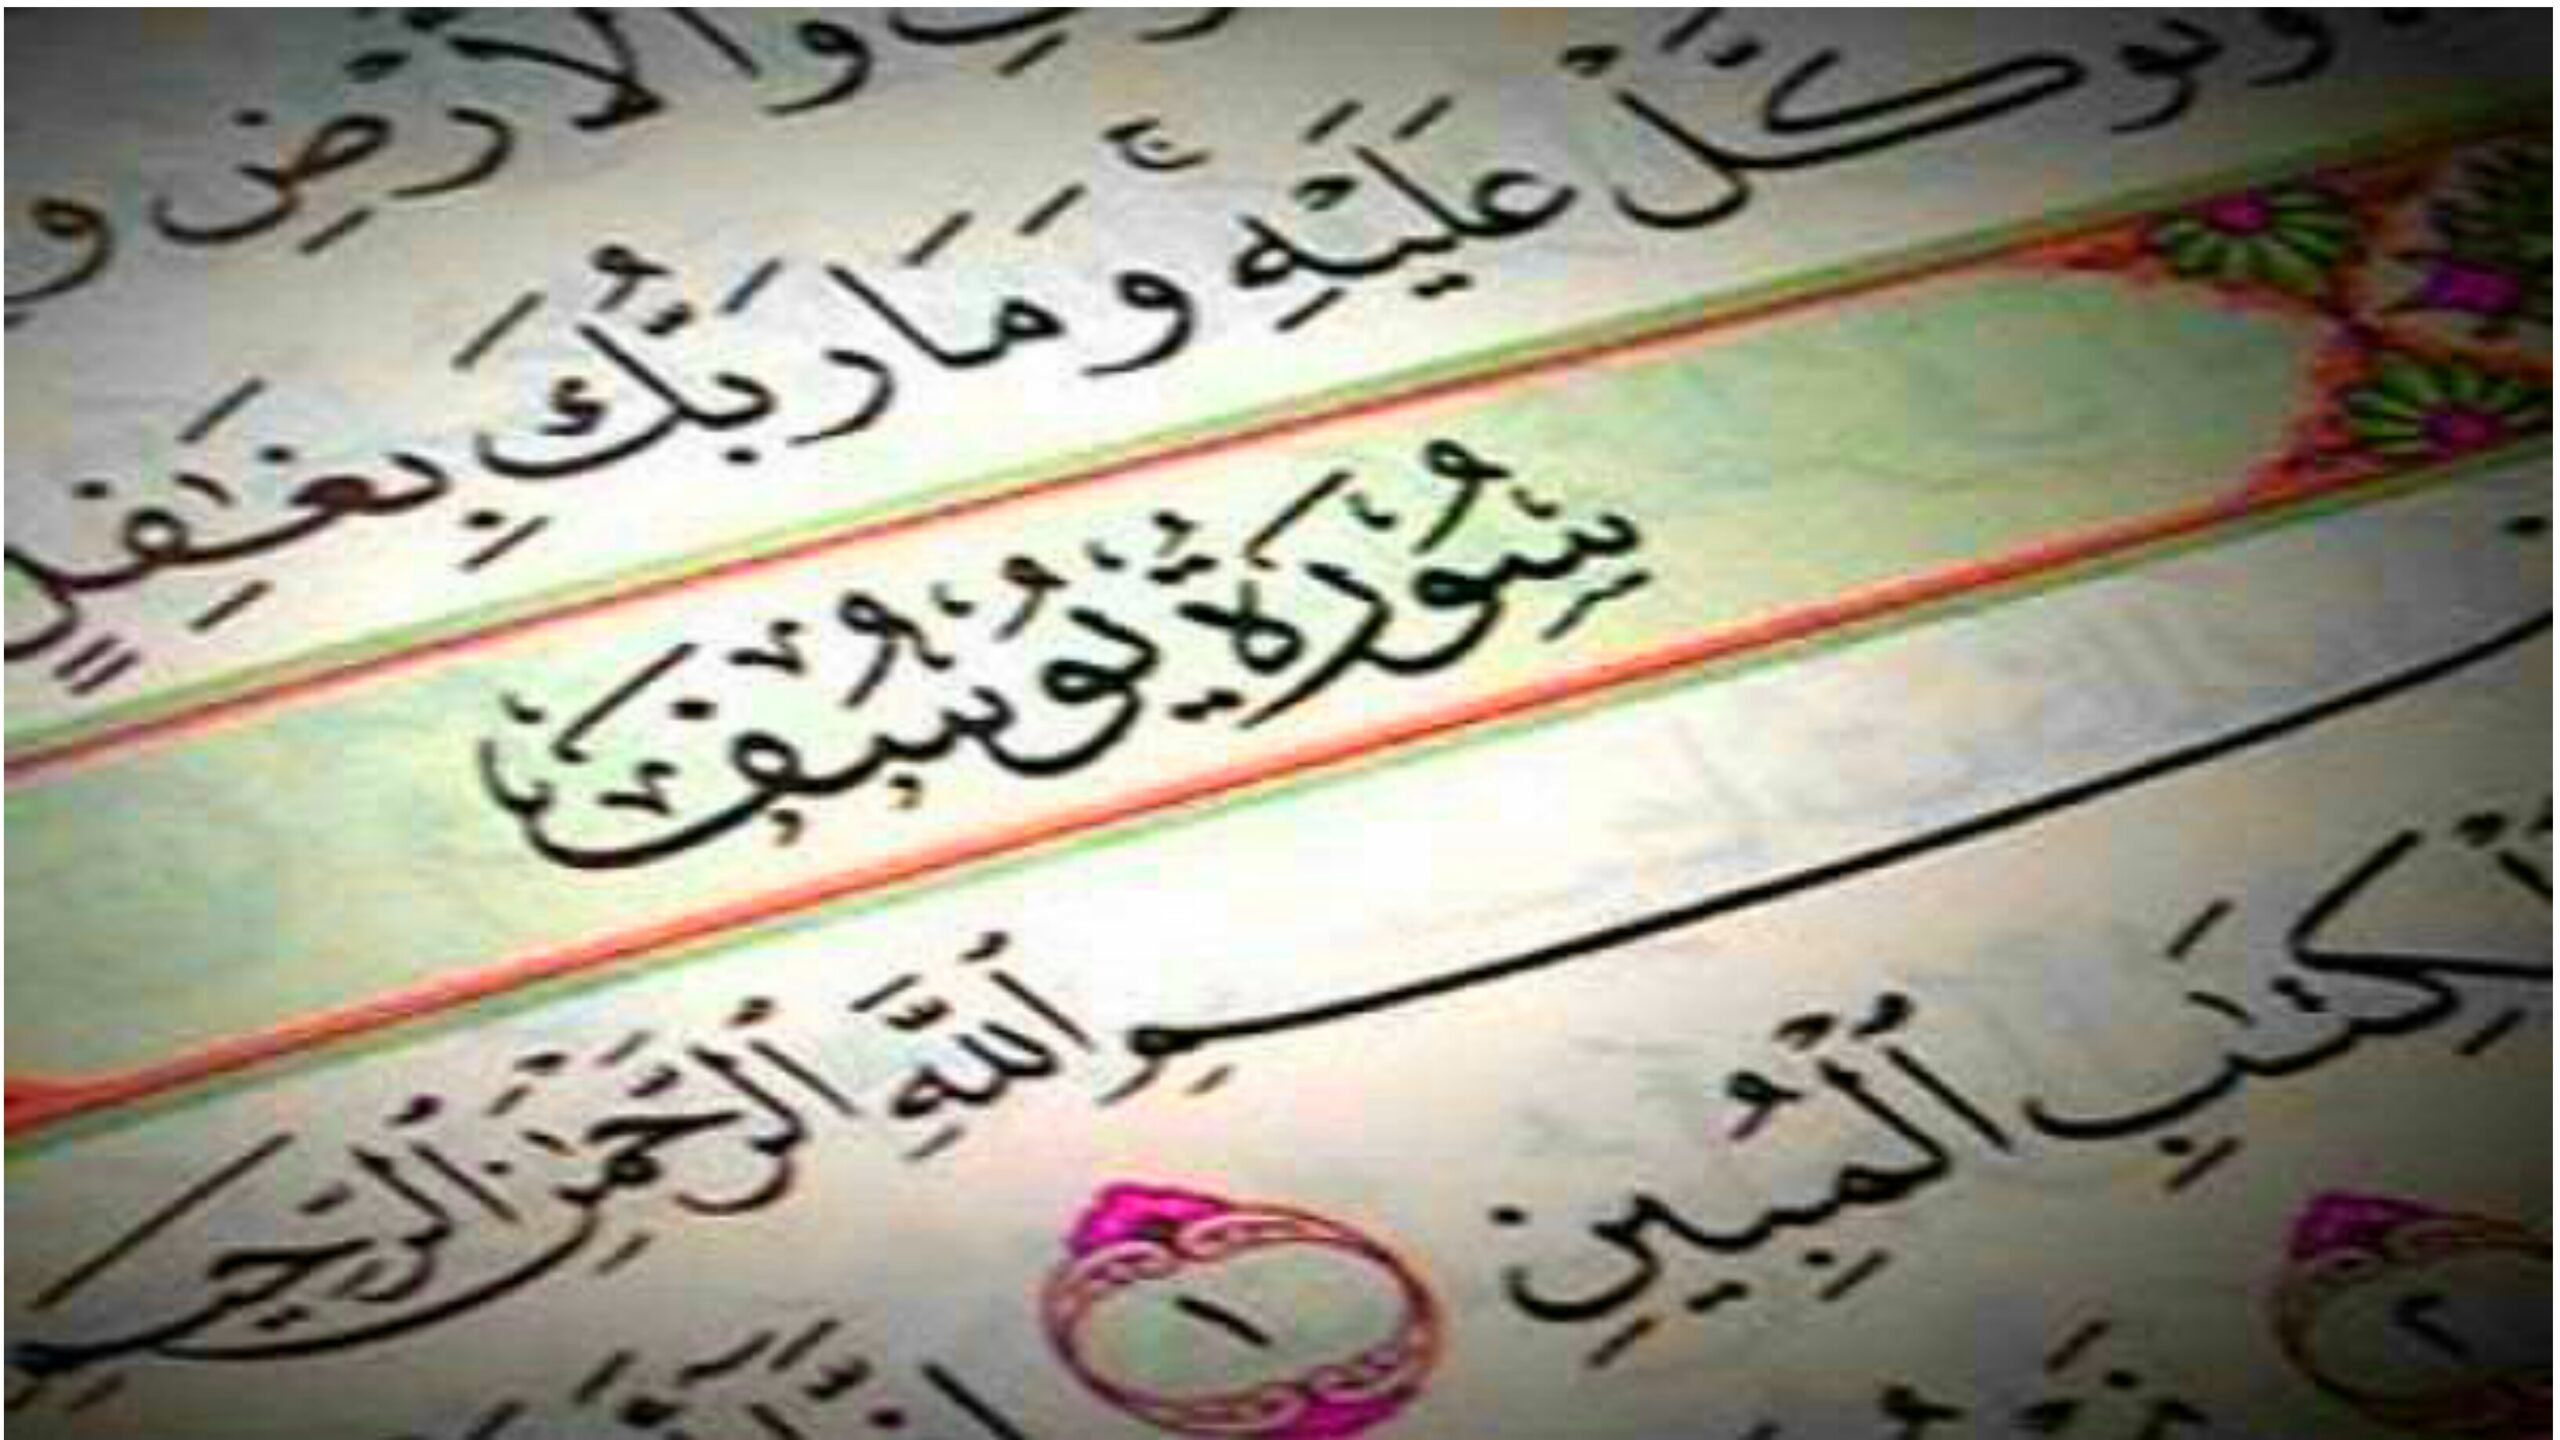 وَالْأَرْضِ و
وَتَوَكَّلْ عَلَيْهِ وَمَا رَبُّكَ بِغَٰفِلٍ
سُورَةُ يُوسُفَ
سْمِ ٱللَّهِ ٱلرَّحْمَٰنِ ٱلرَّحِيمِ
ٱلْكِتَٰبِ ٱلْمُبِينِ ١ إِنَّا
٢